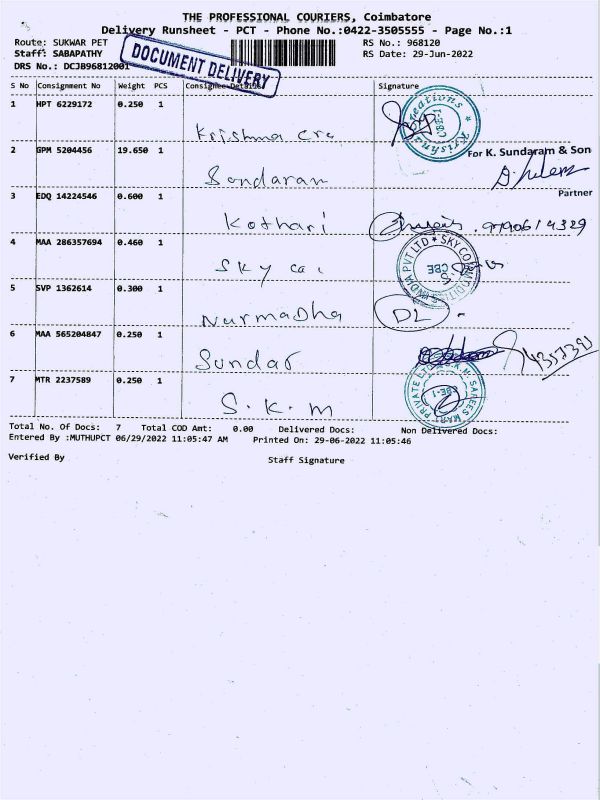 THE PROFESSIONAL COURIERS, Coimbatore
Delivery Runsheet - PCT - Phone No.:0422-3505555 - Page No.:1
Route: SUKWAR PET
RS No.: 968120
Staff: SABAPATHY
RS Date: 29-Jun-2022
DRS No.: DCJB96812001
DOCUMENT DELIVERY
S No Consignment No Weight PCS Consignee Details Signature
1 HPT 6229172 0.250 1
Krishna Cre
2 GPM 5204456 19.650 1
For K. Sundaram & Son
Sundaram
Partner
3 EDQ 14224546 0.600 1
Kothari
4 MAA 286357694 0.460 1
Sky
5 SVP 1362614 0.300 1
Nurmadha
DL
6 MAA 565204847 0.250 1
Sundar
7 MTR 2237589 0.250 1
S.K.M
Total No. Of Docs: 7 Total COD Amt: 0.00 Delivered Docs: Non Delivered Docs:
Entered By :MUTHUPCT 06/29/2022 11:05:47 AM Printed On: 29-06-2022 11:05:46
Verified By Staff Signature